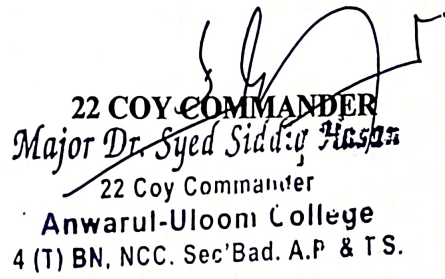 22 COY COMMANDER
Major Dr. Syed Siddiq Hasan
22 Coy Commander
Anwarul-Uloom College
4 (T) BN, NCC. Sec'Bad. A.P & TS.